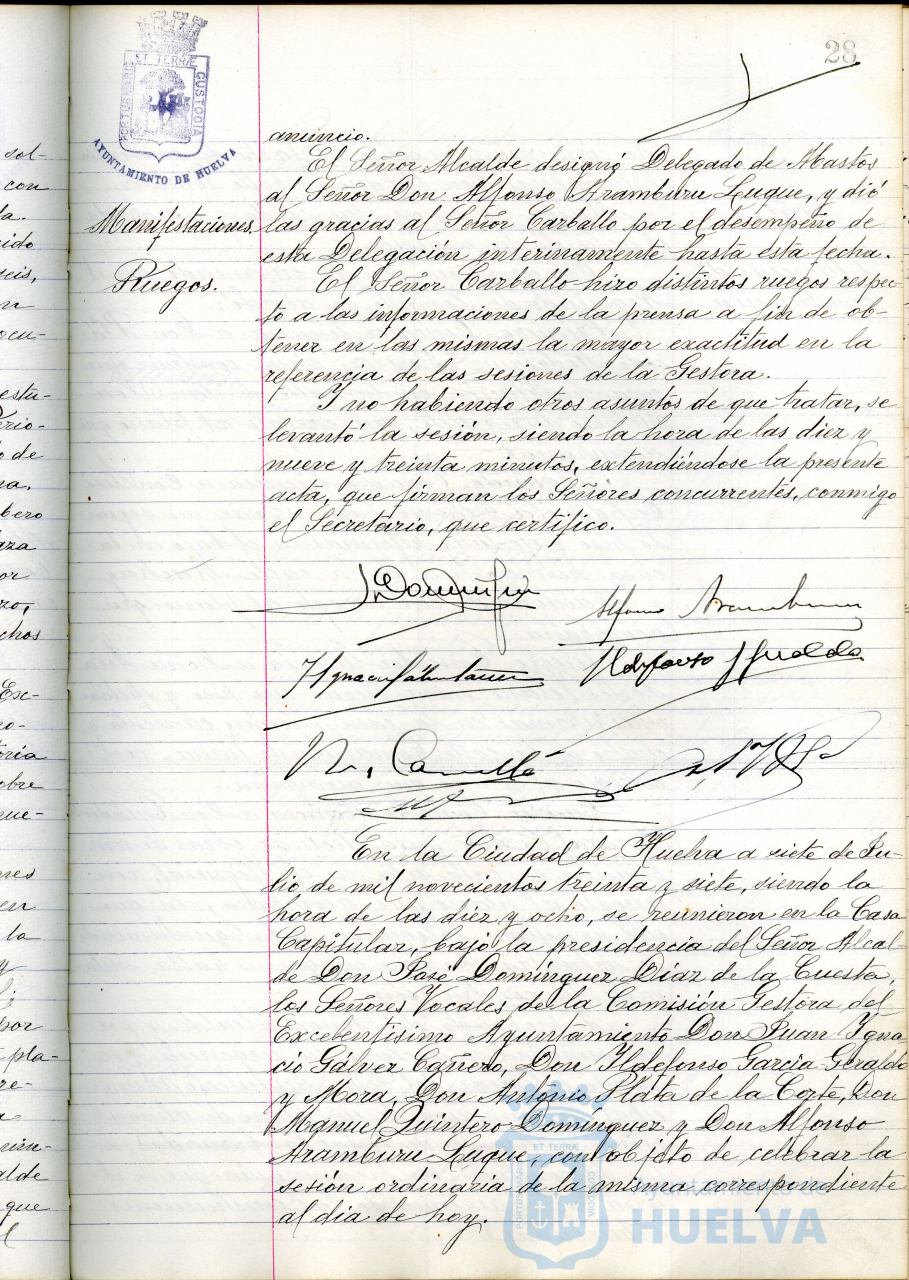 28
PORTUS MARIS ET TERRÆ CUSTODIA
AYUNTAMIENTO DE HUELVA
anuncio.
El Señor Alcalde designó Delegado de Abastos
al Señor Don Alfonso Aramburu Luque, y dió
Manifestaciones.
las gracias al Señor Carballo por el desempeño de
esta Delegación interinamente hasta esta fecha.
Ruegos.
El Señor Carballo hizo distintos ruegos respec-
to a las informaciones de la prensa a fin de ob-
tener en las mismas la mayor exactitud en la
referencia de las sesiones de la Gestora.
Y no habiendo otros asuntos de que tratar, se
levantó la sesión, siendo la hora de las diez y
nueve y treinta minutos, extendiéndose la presente
acta, que firman los Señores concurrentes, conmigo
el Secretario, que certifico.
Alfonso Aramburu
En la Ciudad de Huelva a siete de Ju-
lio de mil novecientos treinta y siete, siendo la
hora de las diez y ocho, se reunieron en la Casa
Capitular, bajo la presidencia del Señor Alcal-
de Don José Domínguez Díaz de la Cuesta,
los Señores Vocales de la Comisión Gestora del
Excelentísimo Ayuntamiento Don Juan Ygna
cio Gálvez Cañero, Don Yldefonso García Geraldo
y Mora, Don Antonio Plata de la Corte, Don
Manuel Quintero Domínguez y Don Alfonso
Aramburu Luque, con objeto de celebrar la
sesión ordinaria de la misma correspondiente
al día de hoy.
Ayuntamiento de
HUELVA